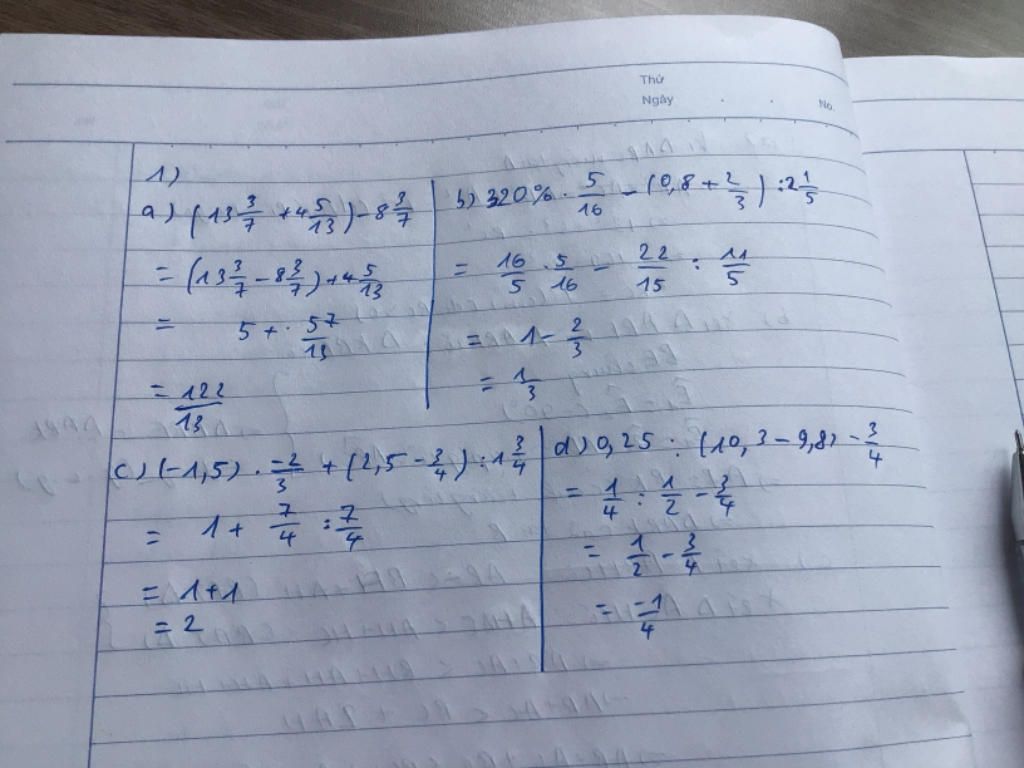 Thứ
Ngày . . No.
1)
a) (13 3/7 + 4 5/13) - 8 3/7
= (13 3/7 - 8 3/7) + 4 5/13
= 5 + 57/13
= 122/13
b) 320% . 5/16 - (0,8 + 2/3) : 2 1/5
= 16/5 . 5/16 - 22/15 : 11/5
= 1 - 2/3
= 1/3
c) (-1,5) . -2/3 + (2,5 - 3/4) : 1 3/4
= 1 + 7/4 : 7/4
= 1 + 1
= 2
d) 0,25 : (10,3 - 9,8) - 3/4
= 1/4 : 1/2 - 3/4
= 1/2 - 3/4
= -1/4